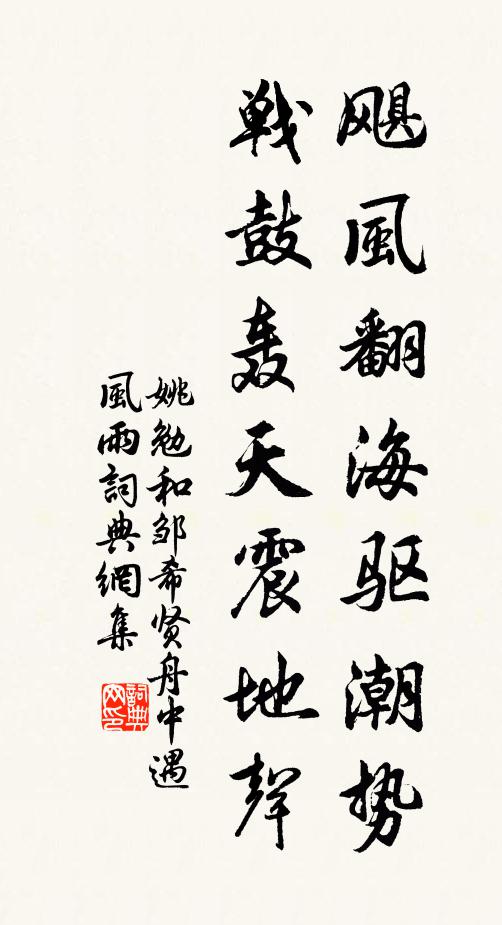 飓風翻海驱潮势
戦鼓轰天震地聲
姚勉和邹希贤舟中遇
風雨詞典網集
詞典网印